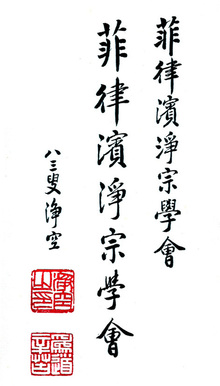 菲律濱淨宗學會
菲律濱淨宗學會
八三叟淨空